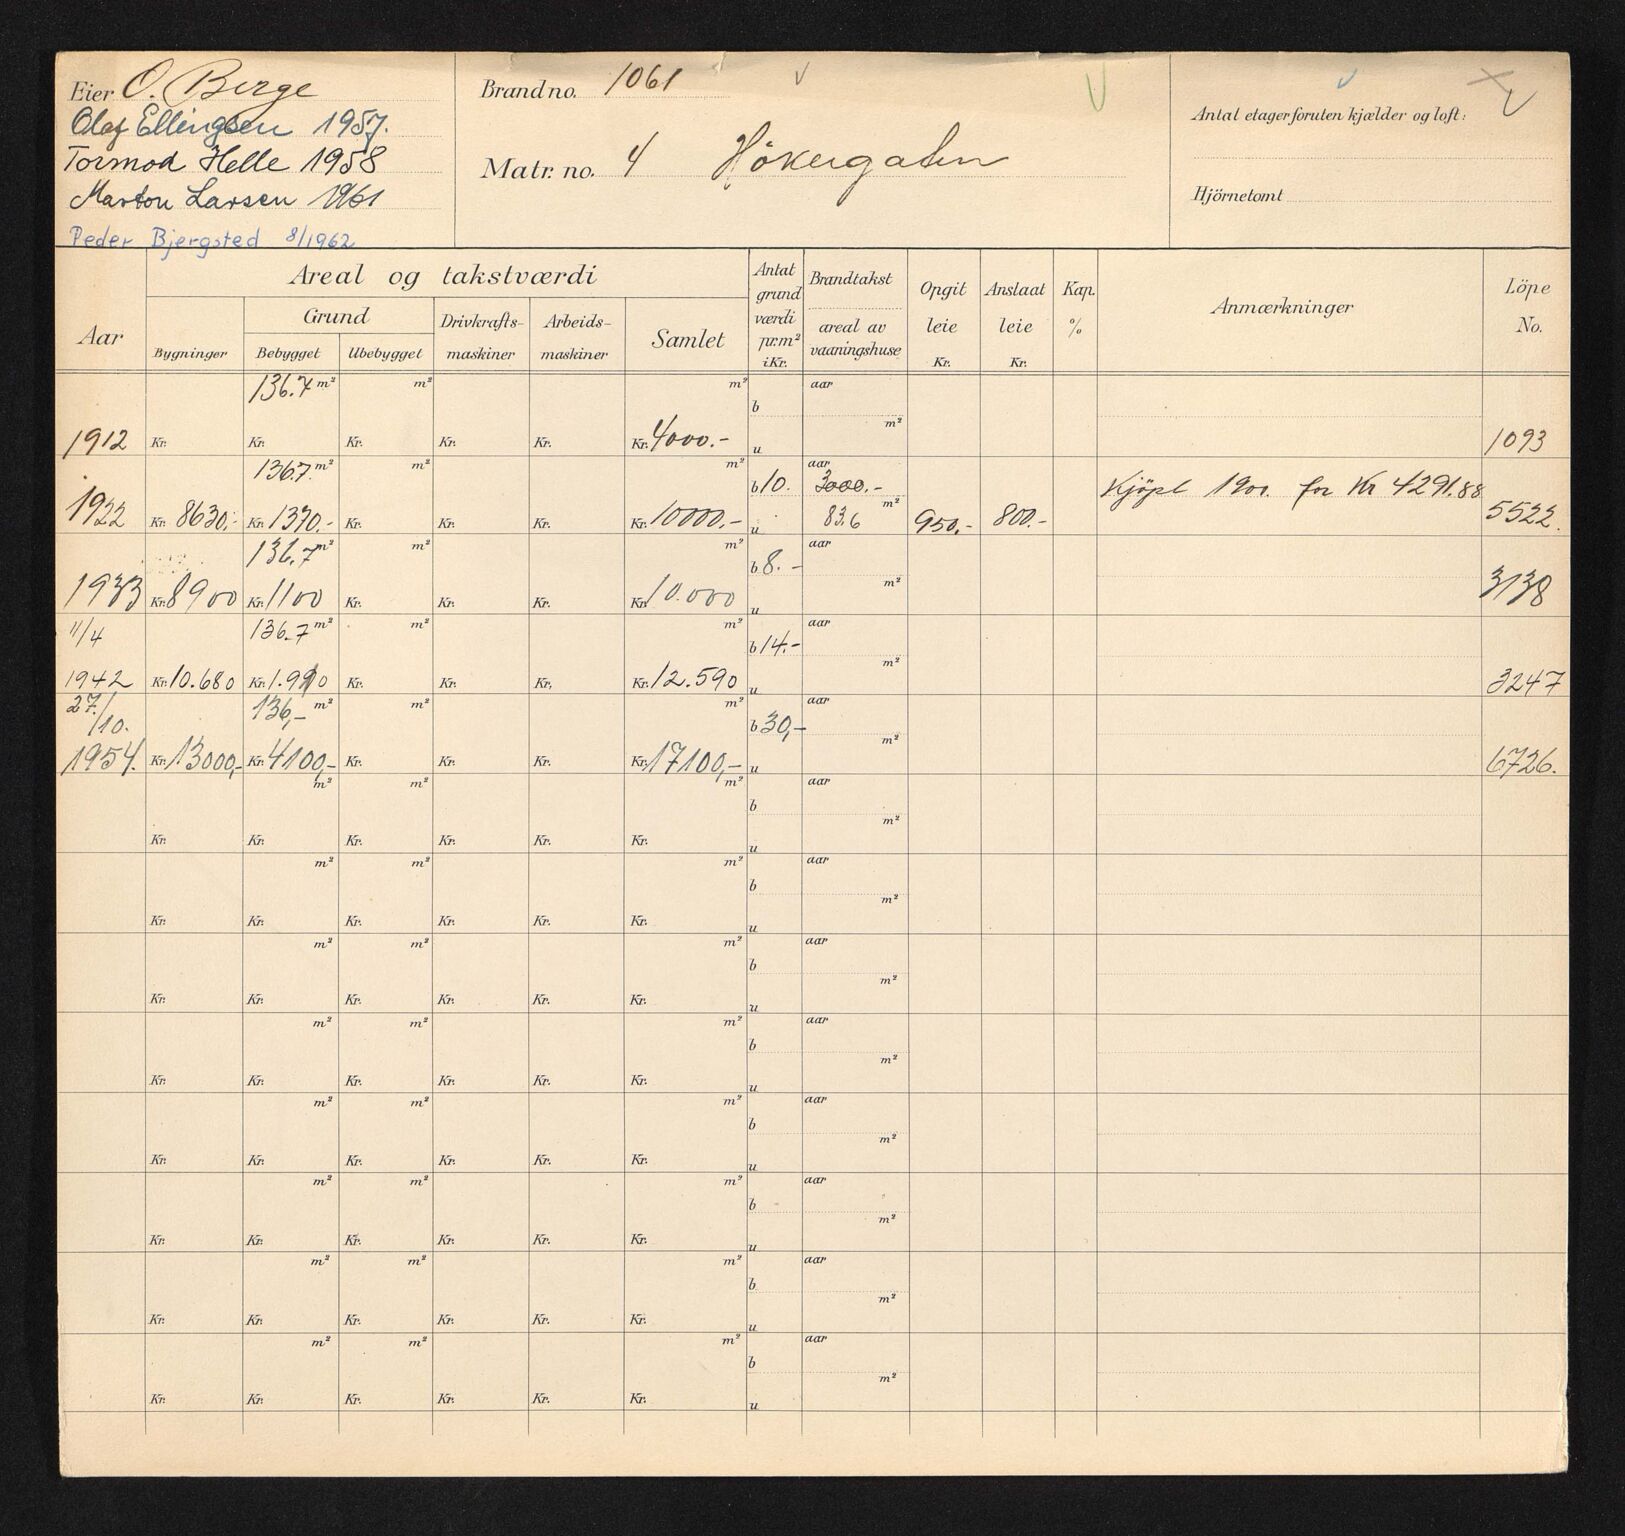 Eier O. Berge
Olaf Ellingsen 1957.
Tormod Helle 1958
Marton Larsen 1961
Peder Bjergsted 8/1962
Brand no. 1061
Matr. no. 4 Hökergaten
Antal etager foruten kjælder og loft:
Hjörnetomt
Aar
Areal og takstværdi
Bygninger
Grund
Bebygget Ubebygget
Drivkrafts-
maskiner
Arbeids-
maskiner
Samlet
Antat
grund
værdi
pr. m²
i Kr.
Brandtakst
areal av
vaaningshuse
Opgit
leie
Kr.
Anslaat
leie
Kr.
Kap.
%
Anmærkninger
Löpe
No.
136.7 m² m² m² b aar
m²
1912 Kr. Kr. Kr. Kr. Kr. Kr. 4000.- u 1093
136.7. m² m² m² b 10. aar 3000.- Kjöpt 1900. for Kr 4291.88
1922 Kr. 8630,- Kr. 1370.- Kr. Kr. Kr. Kr. 10000,- u m² 83.6 950.- 800.- 5522.
136.7 m² m² m² b 8.- aar
m²
1933 Kr. 8900 Kr. 1100 Kr. Kr. Kr. Kr. 10.000 u 3138
11/4 136.7 m² m² m² b 14.- aar
m²
1942 Kr. 10.680 Kr. 1.910 Kr. Kr. Kr. Kr. 12.590 u 3247
27./10. 136,- m² m² m² b 30,- aar
m²
1954. Kr. 13000,- Kr. 4100,- Kr. Kr. Kr. Kr. 17100,- u 6726.
m² m² m² b aar
m²
Kr. Kr. Kr. Kr. Kr. Kr. u
m² m² m² b aar
m²
Kr. Kr. Kr. Kr. Kr. Kr. u
m² m² m² b aar
m²
Kr. Kr. Kr. Kr. Kr. Kr. u
m² m² m² b aar
m²
Kr. Kr. Kr. Kr. Kr. Kr. u
m² m² m² b aar
m²
Kr. Kr. Kr. Kr. Kr. Kr. u
m² m² m² b aar
m²
Kr. Kr. Kr. Kr. Kr. Kr. u
m² m² m² b aar
m²
Kr. Kr. Kr. Kr. Kr. Kr. u
m² m² m² b aar
m²
Kr. Kr. Kr. Kr. Kr. Kr. u